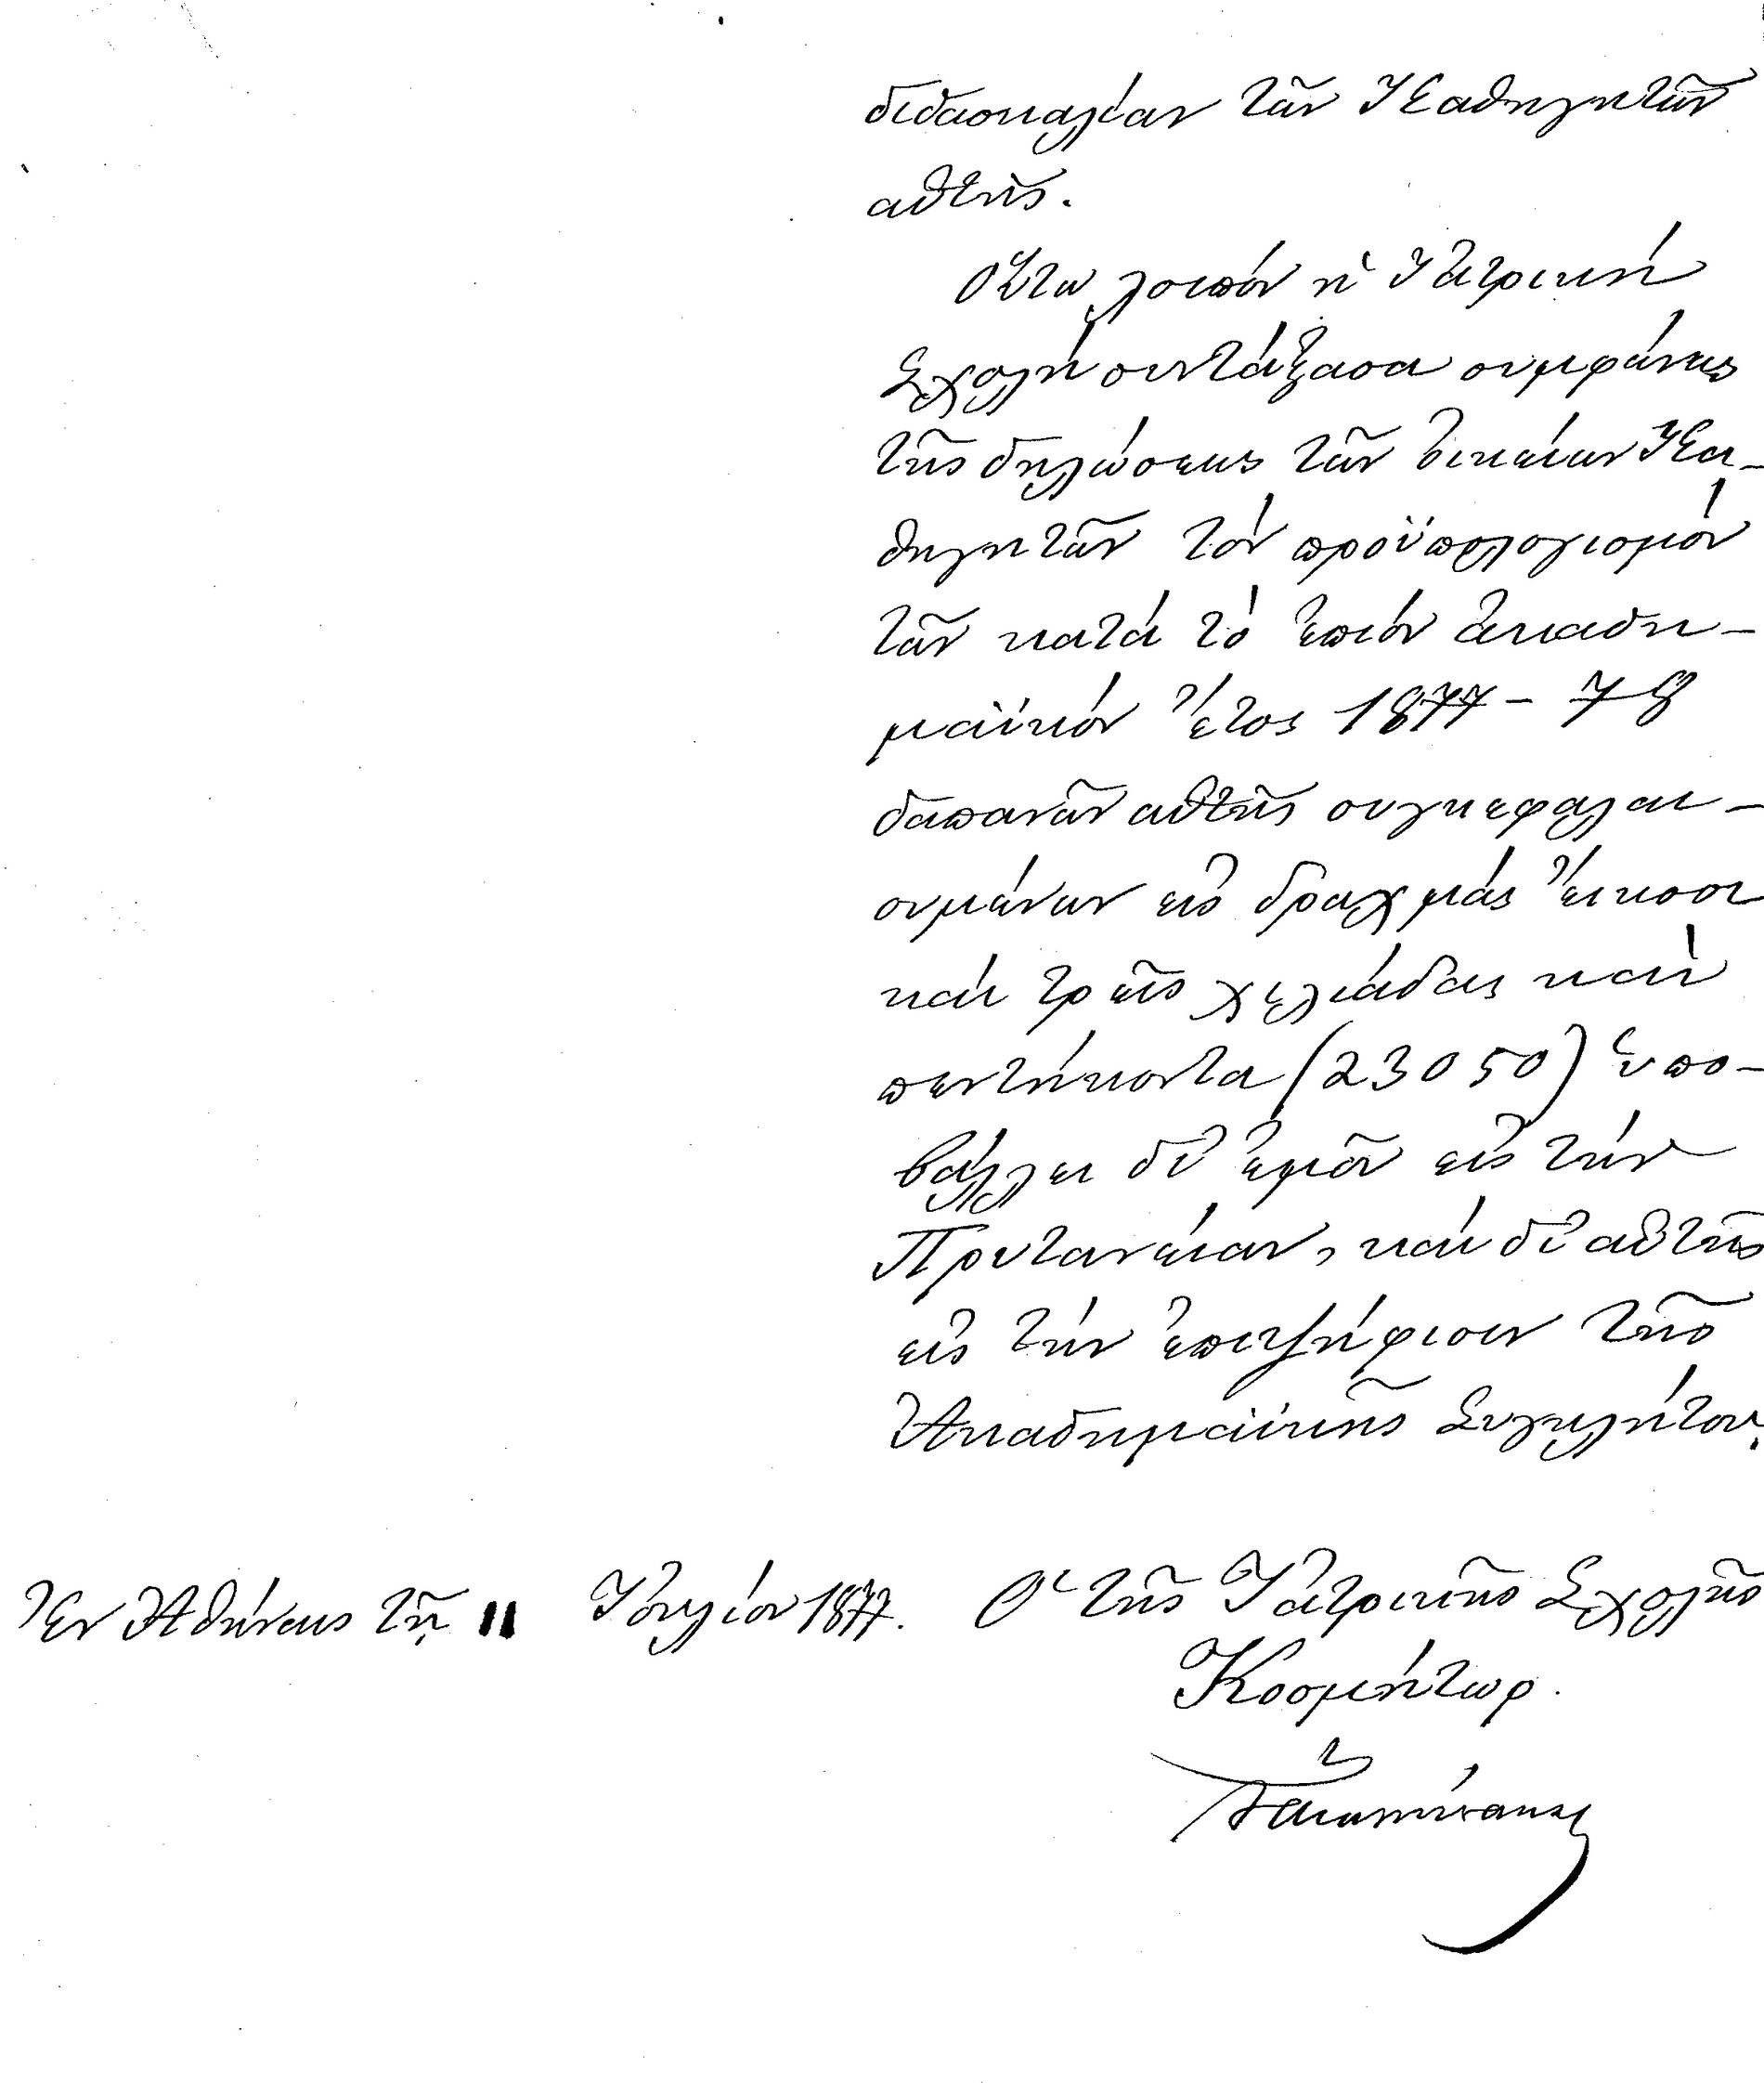 διδασκαλίαν τῶν Καθηγητῶν
αὐτῆς.
Οὕτω λοιπόν ἡ Ἰατρική
Σχολή συντάξασα συμφώνως
τῆς δηλώσεως τῶν οἰκείων Κα-
θηγητῶν τόν προϋπολογισμόν
τῶν κατά τό ἐπιόν ἀκαδη-
μαϊκόν ἔτος 1877 - 78
δαπανῶν αὐτῆς συγκεφαλαι-
ουμένων εἰς δραχμάς εἴκοσι
καί τρεῖς χιλιάδας καί
πεντήκοντα (23050) ὑπο-
βάλλει δι' ἐμοῦ εἰς τήν
Πρυτανείαν, καί δι' αὐτῆς
εἰς τήν ἐπιψήφισιν τῆς
Ἀκαδημαϊκῆς Συγκλήτου.
Ἐν Ἀθήναις τῇ 11 Ἰουλίου 1877. Ὁ τῆς Ἰατρικῆς Σχολῆς
Κοσμήτωρ.